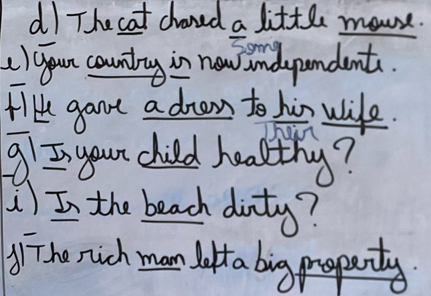 d) The cat chased a little mouse.
e) Your country is now independent.
Some
f) He gave a dress to his wife.
Their
g) Is your child healthy?
i) Is the beach dirty?
j) The rich man left a big property.